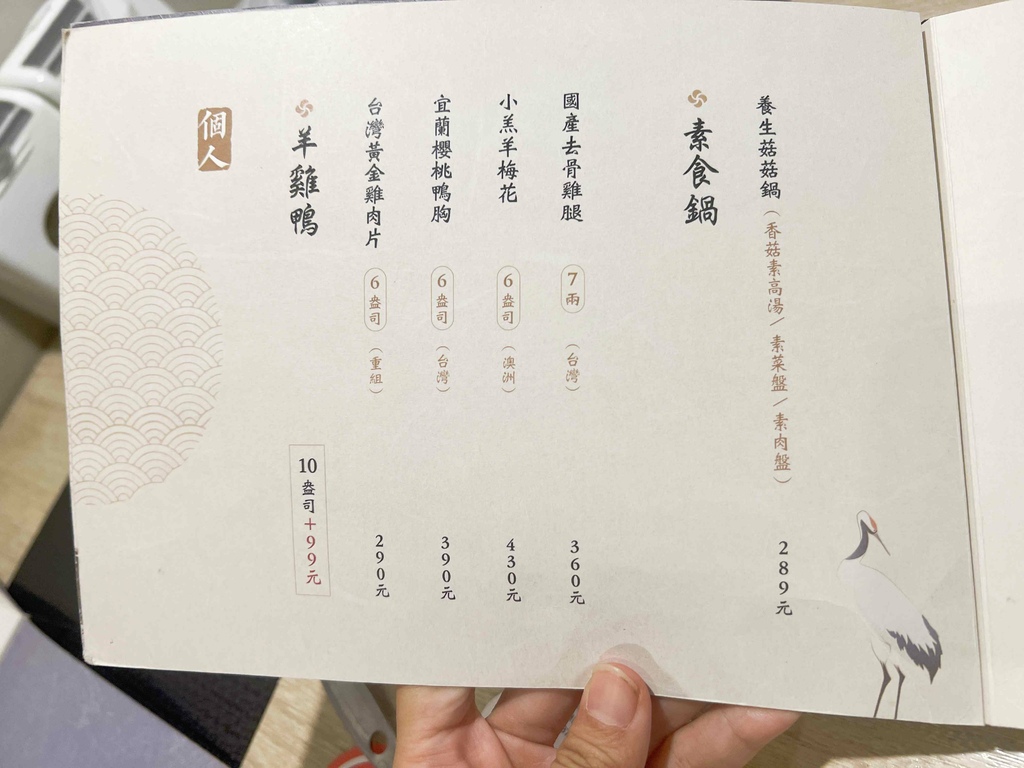 個人
羊雞鴨
10盎司+99元
台灣黃金雞肉片 6盎司（重組） 290元
宜蘭櫻桃鴨胸 6盎司（台灣） 390元
小羔羊梅花 6盎司（澳洲） 430元
國產去骨雞腿 7兩（台灣） 360元
素食鍋
養生菇菇鍋（香菇素高湯/素菜盤/素肉盤） 289元